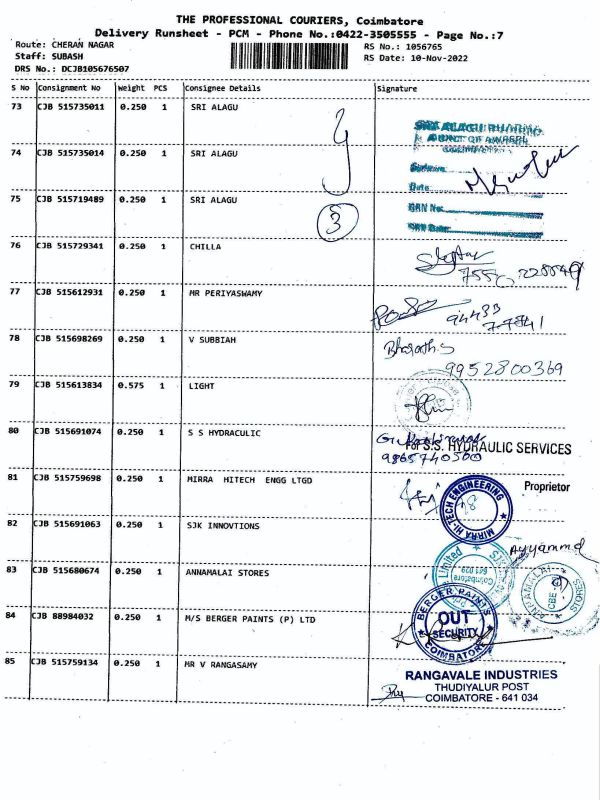 THE PROFESSIONAL COURIERS, Coimbatore
Delivery Runsheet - PCM - Phone No.:0422-3505555 - Page No.:7
Route: CHERAN NAGAR
RS No.: 1056765
Staff: SUBASH
RS Date: 10-Nov-2022
DRS No.: DCJB105676507
S No Consignment No Weight PCS Consignee Details Signature
73 CJB 515735011 0.250 1 SRI ALAGU
74 CJB 515735014 0.250 1 SRI ALAGU
75 CJB 515719489 0.250 1 SRI ALAGU
3
SRI ALAGU
Date
GRN No.
GRN Date:
76 CJB 515729341 0.250 1 CHILLA
77 CJB 515612931 0.250 1 MR PERIYASWAMY
94433
78 CJB 515698269 0.250 1 V SUBBIAH
Bharath.S
9952800369
79 CJB 515613834 0.575 1 LIGHT
80 CJB 515691074 0.250 1 S S HYDRACULIC
For S.S. HYDRAULIC SERVICES
9865740500
Proprietor
81 CJB 515759698 0.250 1 MIRRA HITECH ENGG LTGD
MIRRA HI-TECH ENGINEERING
82 CJB 515691063 0.250 1 SJK INNOVTIONS
Limited
Coimbatore
641 029
Ayyammal
83 CJB 515680674 0.250 1 ANNAMALAI STORES
ANNAMALAI STORES
CBE
84 CJB 88984032 0.250 1 M/S BERGER PAINTS (P) LTD
BERGER PAINTS
OUT
SECURITY
COIMBATORE
85 CJB 515759134 0.250 1 MR V RANGASAMY
RANGAVALE INDUSTRIES
THUDIYALUR POST
COIMBATORE - 641 034